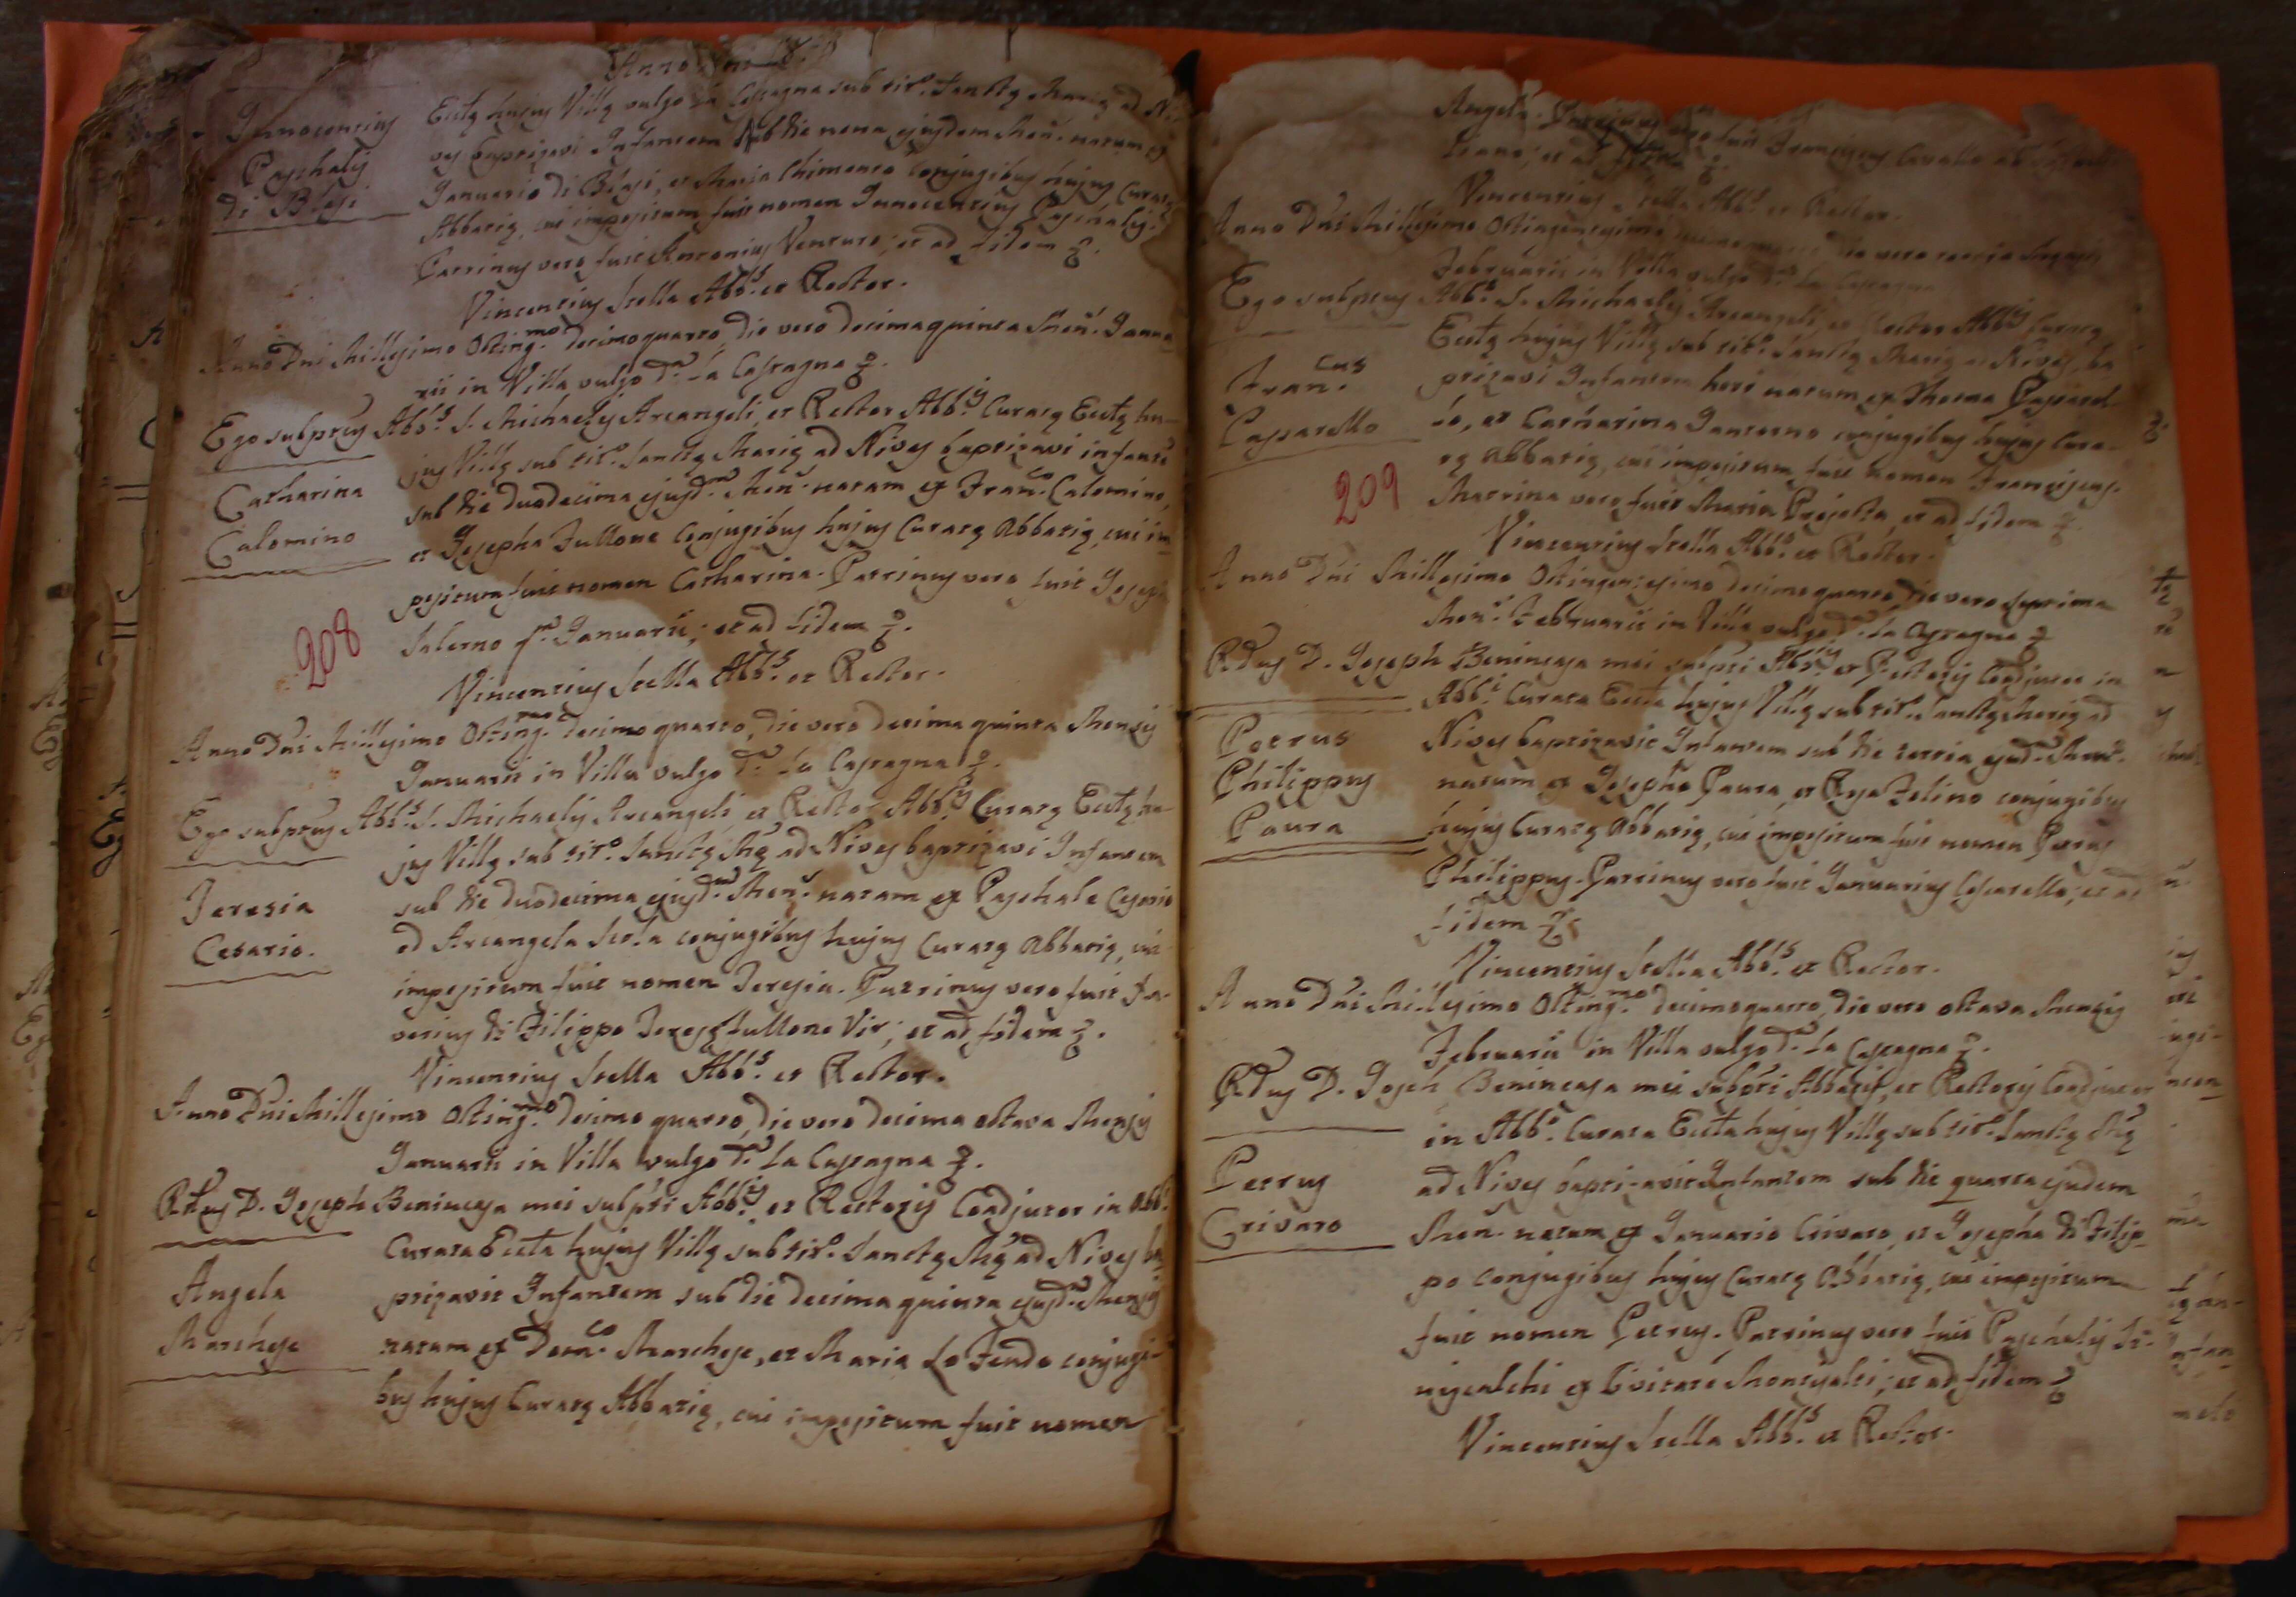 Anno
Innocentius
Paschalis
di Blasi
Ecctę hujus Villę vulgo La Castagna sub tit.º Sanctę Marię ad Ni-
ves baptizavi Infantem sub die nona ejusdem Men.s natum ex
Januario di Blasi, et Maria Chimento Conjugibus hujus Curatę
Abbatię, cui impositum fuit nomen Innocentius Paschalis.
Patrinus vero fuit Antonius Venturo; et ad fidem
Vincentius Stella Abb.s et Rector.
Anno Dni Millesimo Octing.mo decimoquarto, die vero decimaquinta Men.s Janua-
rii in Villa vulgo d.a La Castagna
Ego subptus Abb.s S. Michaelis Arcangeli, et Rector Abb.is Curatę Ecctę hu-
Catharina
Calomino
jus Villę sub tit.º Sanctę Marię ad Nives baptizavi infantē
sub die duodecima ejusd.m Men.s natam ex Fran.co Calomino,
et Josepha Fullone Conjugibus hujus Curatę Abbatię, cui im-
positum fuit nomen Catharina. Patrinus vero fuit Joseph
208
Salerno q.m Januarii; et ad fidem
Vincentius Stella Abb.s et Rector.
Anno Dni Millesimo Octing.mo decimo quarto, die vero decima quinta Mensis
Januarii in Villa vulgo d.a La Castagna
Ego subptus Abb.s S. Michaelis Arcangeli et Rector Abb.is Curatę Ecctę hu-
jus Villę sub tit.º Sanctę Mę ad Nives baptizavi Infantem
Teresia
Cesario.
sub die duodecima ejusd.m Men.s natam ex Paschale Cesario
ed Arcangela Scola conjugibus hujus Curatę Abbatię, cui
impositum fuit nomen Teresia. Patrinus vero fuit Sa-
verius di Filippo Teresę Fullone Vir; et ad fidem
Vincentius Stella Abb.s et Rector.
Anno Dni Millesimo Octing.mo decimo quarto, die vero decima octava Mensis
Januarii in Villa vulgo d.a La Castagna
R.dus D. Joseph Benincasa mei subpti Abb.is et Rectoris Coadjutor in Abb.i
Curata Eccta hujus Villę sub tit.º Sanctę Mę ad Nives ba-
Angela
Marchese
ptizavit Infantem sub die decima quinta ejusd.m Mensis
natam ex Dom.co Marchese, et Maria Lo Feudo conjugi-
bus hujus Curatę Abbatię, cui impositum fuit nomen
Angela. Patrinus vero fuit Franciscus Cavallo
et ad fidem
Vincentius Stella Abb.s et Rector.
Anno Dni Millesimo Octingentesimo die vero tertia Mensis
Februarii in Villa vulgo d.a La Castagna
Ego subptus Abb.s S. Michaelis Arcangeli, et Rector Abb.is Curatę
Ecctę hujus Villę sub tit.º Sanctę Marię ad Nives, ba-
Fran.cus
Capparello
ptizavi Infantem heri natum ex Thoma Capparel-
lo, et Catharina Santerno conjugibus hujus Cura-
tę Abbatię, cui impositum fuit nomen Franciscus.
209
Matrina vero fuit Maria Projetta, et ad fidem
Vincentius Stella Abb.s et Rector.
Anno Dni Millesimo Octingentesimo decimo quarto, die vero septima
Men.s Februarii in Villa vulgo d.a La Castagna
R.dus D. Joseph Benincasa mei subpti Abb.is et Rectoris Coadjutor in
Abb.i Curata Eccta hujus Villę sub tit.º Sanctę Marię ad
Petrus
Philippus
Paura
Nives baptizavit Infantem sub die tertia ejusd.m Men.s
natum ex Josepho Paura, et Rosa Folino conjugibus
hujus Curatę Abbatię, cui impositum fuit nomen Petrus
Philippus. Patrinus vero fuit Januarius Costarella; et ad
fidem
Vincentius Stella Abb.s et Rector.
Anno Dni Millesimo Octing.mo decimoquarto, die vero octava Mensis
Februarii in Villa vulgo d.a La Castagna
R.dus D. Joseph Benincasa mei subpti Abbatis, et Rectoris Coadjutor
in Abb.i Curata Eccta hujus Villę sub tit.º Sanctę Mę
Petrus
Crivaro
ad Nives baptizavit Infantem sub die quarta ejusdem
Men.s natum ex Januario Crivaro, et Josepha di Filip-
po conjugibus hujus Curatę Abbatię, cui impositum
fuit nomen Petrus. Patrinus vero fuit Paschalis Si-
niscalchi ex Civitate Montisalti; et ad fidem
Vincentius Stella Abb.s et Rector.